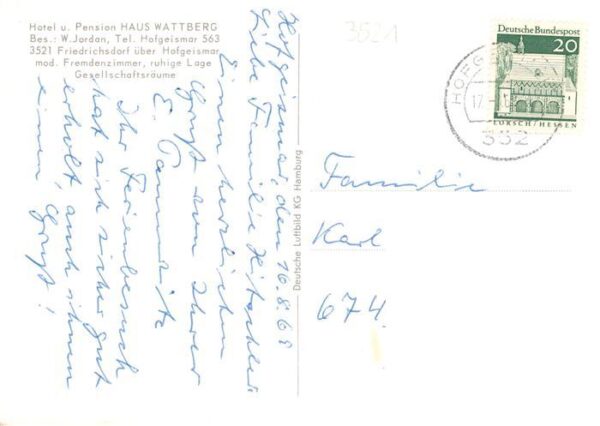 Hotel u. Pension HAUS WATTBERG
Bes.: W. Jordan, Tel. Hofgeismar 563
3521 Friedrichsdorf über Hofgeismar
mod. Fremdenzimmer, ruhige Lage
Gesellschaftsräume
Hofgeismar, den 16.8.68
Liebe Familie
Einen herzlichen
Gruß von Ihrer
E.
Ihr Ferienbesuch
hat sich sicher gut
erholt, auch ihnen
einen Gruß!
Deutsche Luftbild KG Hamburg
3521
Deutsche Bundespost
20
LORSCH/HESSEN
HOFG
17.
352
Familie
Karl
674